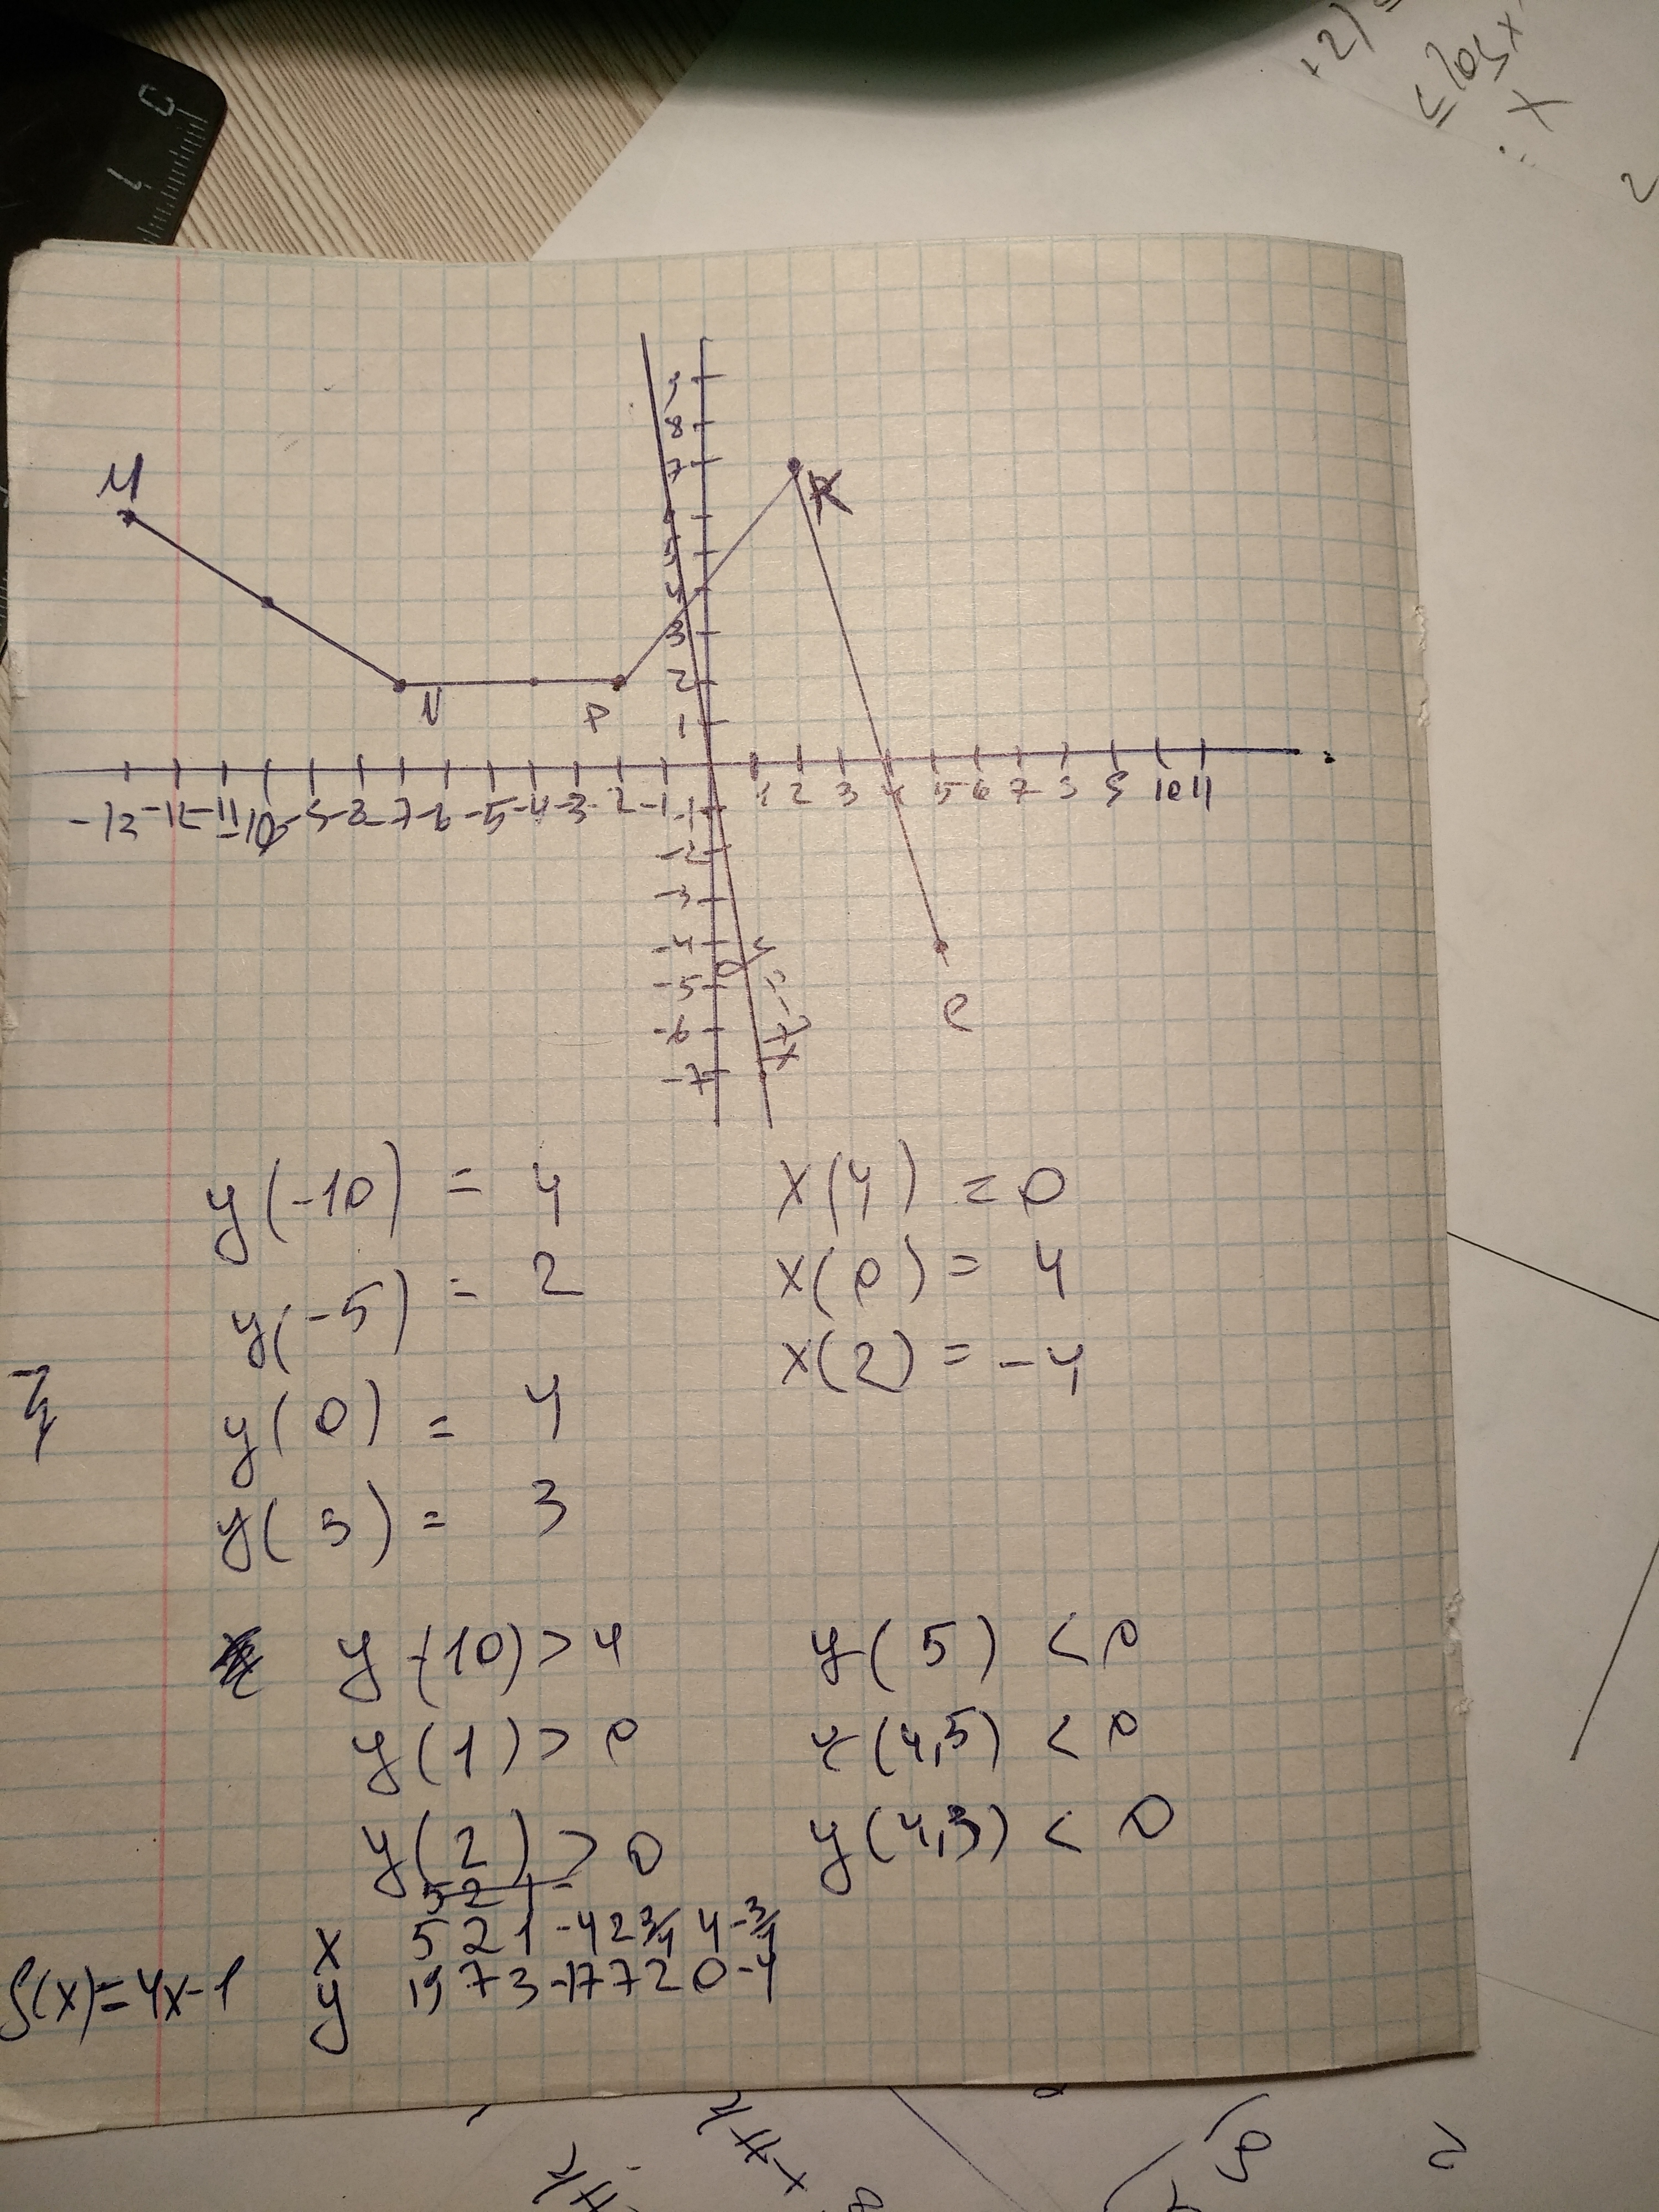 0
1
+2)
≤ log x
X
2
M
9
8
7
K
5
4
3
2
1
N
P
-13 -12 -11 -10 -9 -8 -7 -6 -5 -4 -3 -2 -1 1 2 3 4 5 6 7 8 9 10 11
-1
-2
-3
-4
-5
-6
-7
y=-7x
C
y(-10) = 4 x(4) = 0
y(-5) = 2 x(0) = 4
x(2) = -4
y(0) = 4
y(3) = 3
y(-10) > 4 y(5) < 0
y(1) > 0 y(4,5) < 0
y(2) > 0 y(4,3) < 0
5 2 1
x 5 2 1 -4 2 3/4 4 -3/4
f(x)=4x-1 y 19 7 3 -17 7 2 0 -4